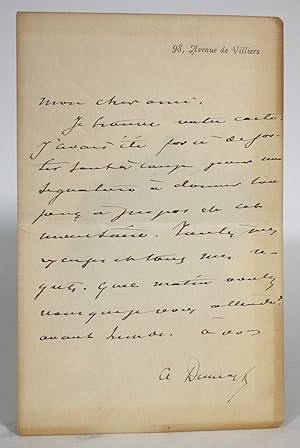 98, Avenue de Villiers
Mon cher ami,
Je trouve votre carte.
J'avais été forcé de sor-
tir tout à coup pour une
signature à donner tou
à propos de cet
inventaire. Veuillez mes
excuses et tous mes re-
grets. Quel matin voulez
vous que je vous attende
avant lundi. à vous
A Dumas f